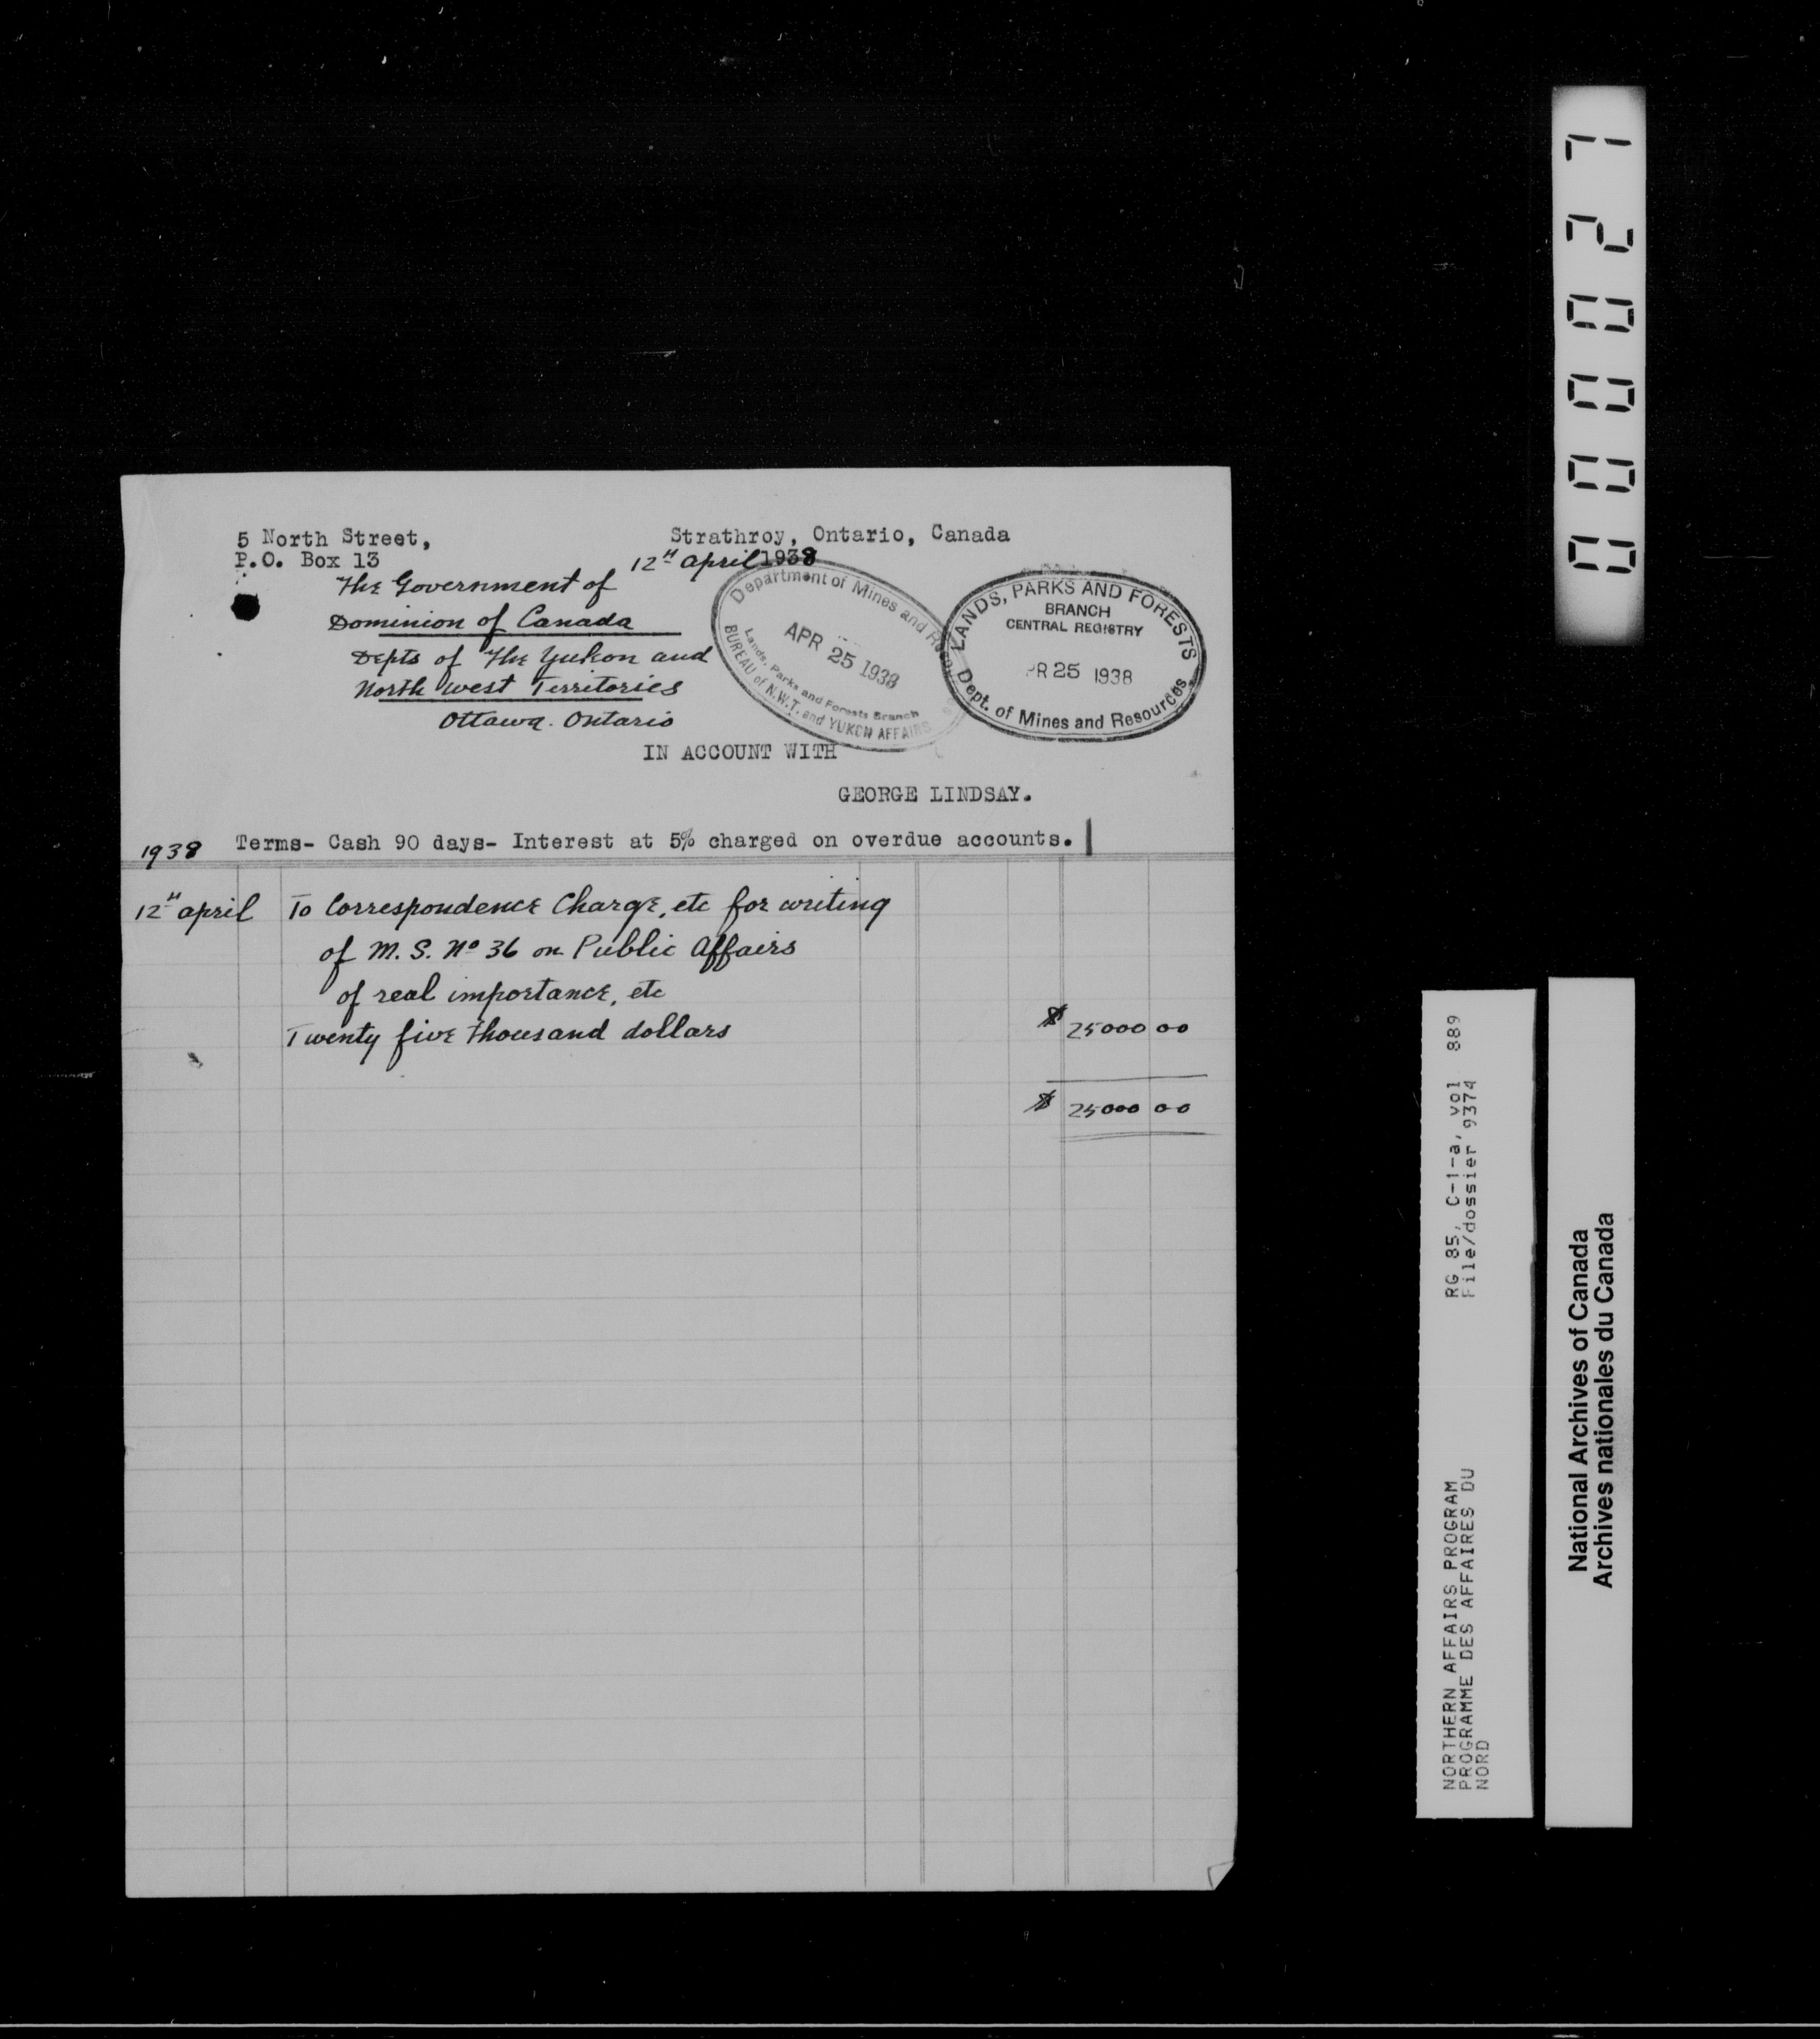 5 North Street,
P.O. Box 13
Strathroy, Ontario, Canada
12th April 1938
The Government of
Dominion of Canada
Depts of The Yukon and
North West Territories
Ottawa. Ontario
Department of Mines and Reso
APR 25 1938
Lands, Parks and Forests Branch
BUREAU of N.W.T. and YUKON AFFAIRS
LANDS, PARKS AND FORESTS
BRANCH
CENTRAL REGISTRY
PR 25 1938
Dept. of Mines and Resources
IN ACCOUNT WITH
GEORGE LINDSAY.
1938 Terms- Cash 90 days- Interest at 5% charged on overdue accounts.
12th April To Correspondence Charge, etc for writing
of M. S. No 36 on Public Affairs
of real importance, etc
Twenty five Thousand dollars $ 25000 00
$ 25000 00
000027
RG 85, C-1-a, vol 889
File/dossier 9374
NORTHERN AFFAIRS PROGRAM
PROGRAMME DES AFFAIRES DU
NORD
National Archives of Canada
Archives nationales du Canada